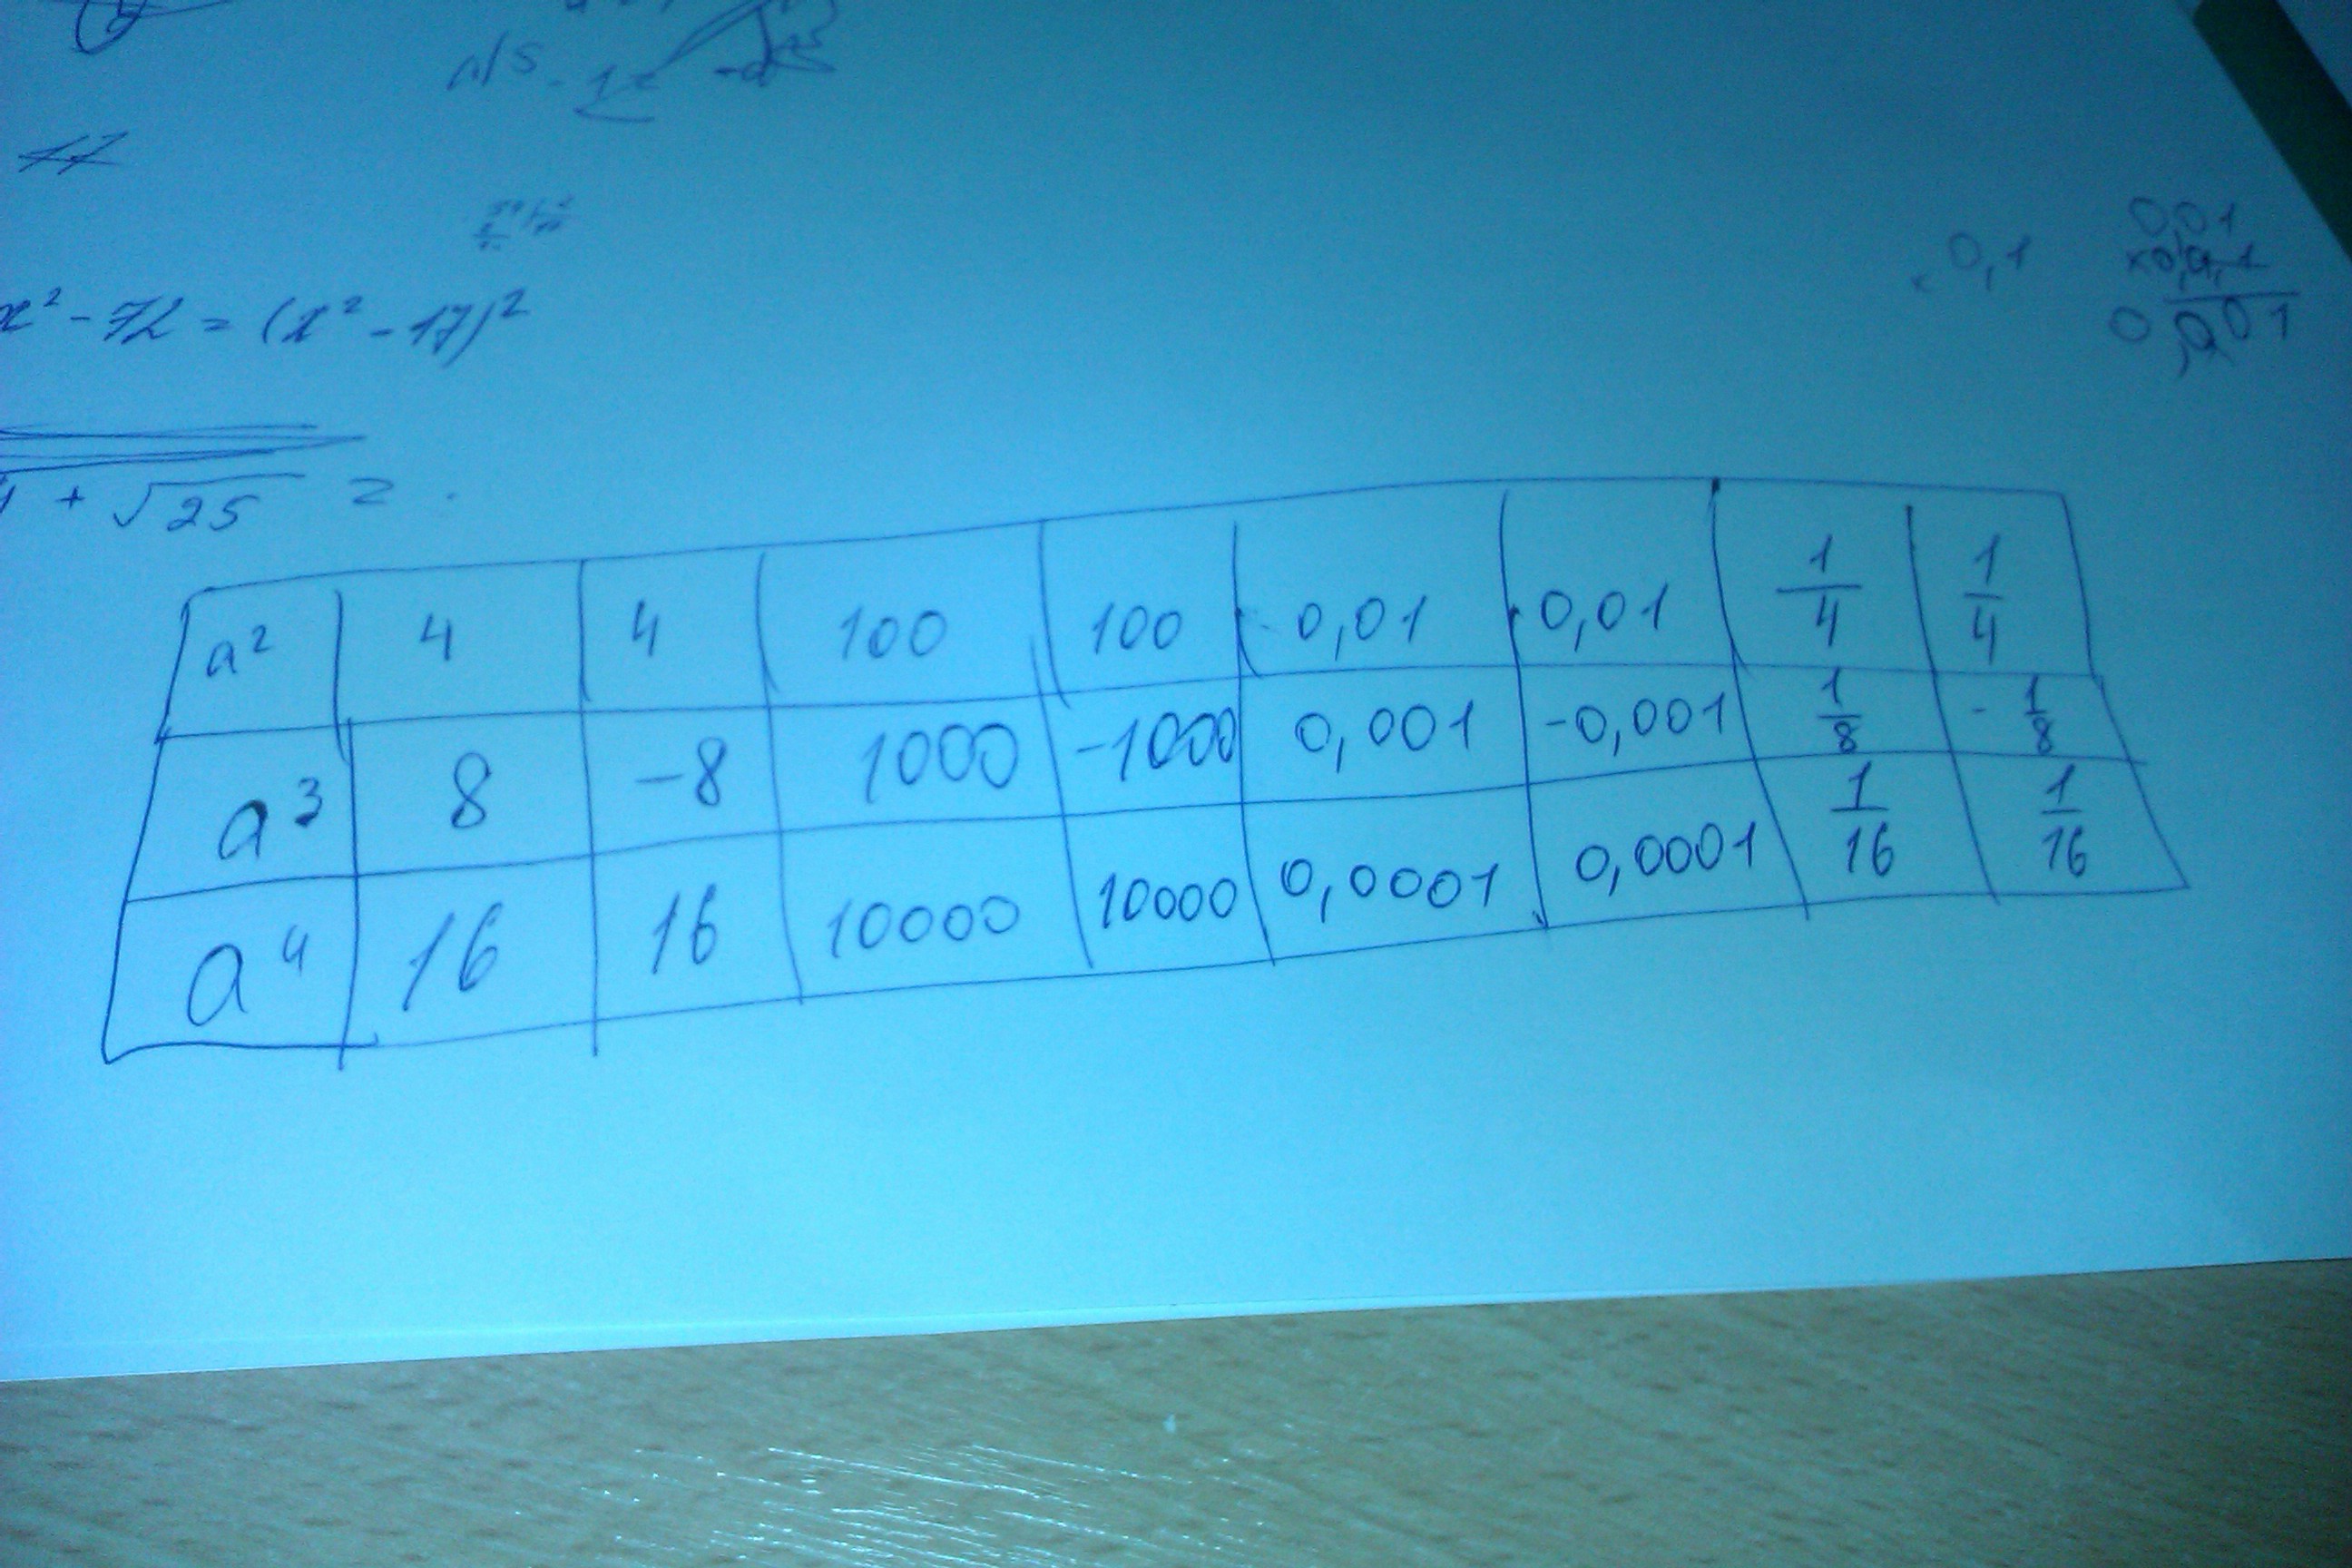 17
0,1
0,01
x² - 72 = (x² - 17)²
+ √25 =
a² 4 4 100 100 0,01 0,01 1/4 1/4
a³ 8 -8 1000 -1000 0,001 -0,001 1/8 -1/8
a⁴ 16 16 10000 10000 0,0001 0,0001 1/16 1/16